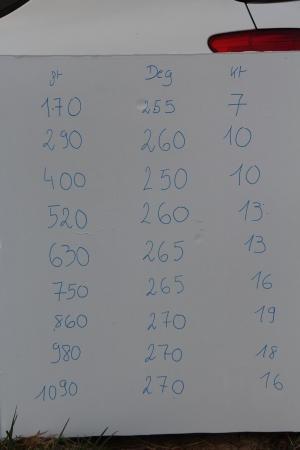 ft Deg Kt
170 255 7
290 260 10
400 250 10
520 260 13
630 265 13
750 265 16
860 270 19
980 270 18
1090 270 16